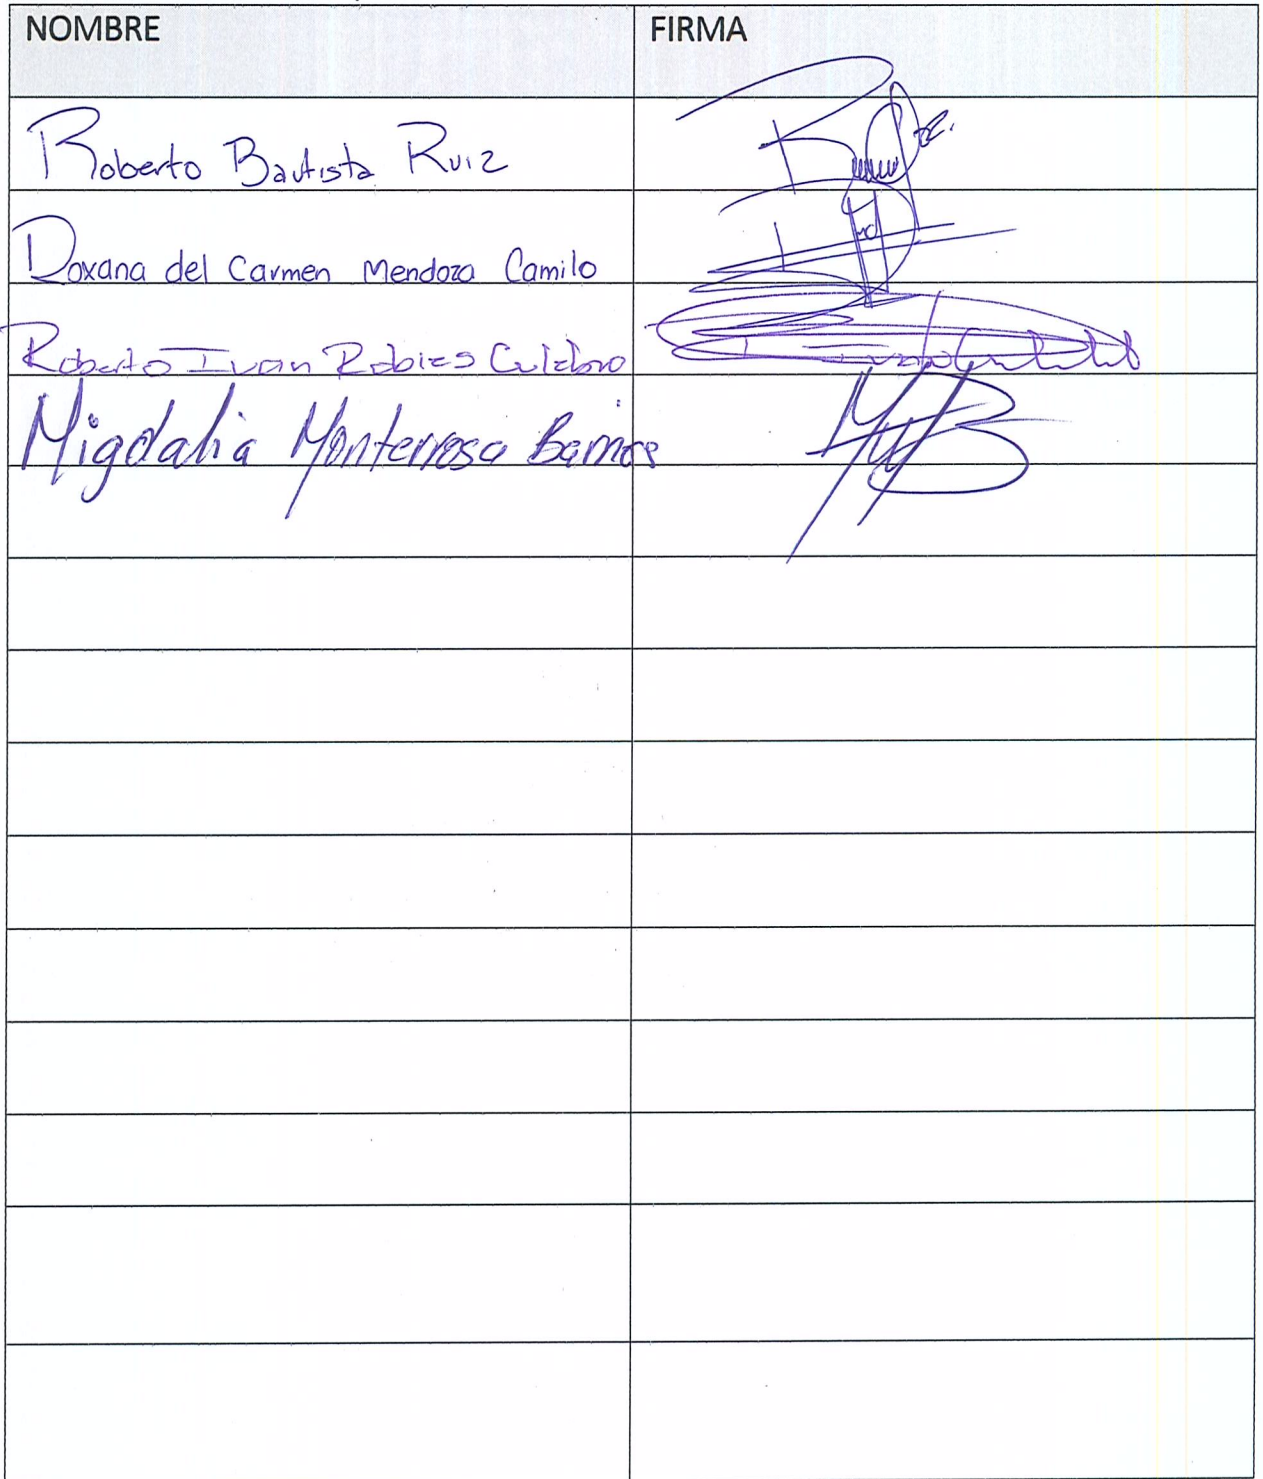 NOMBRE FIRMA
Roberto Bautista Ruiz
Roxana del Carmen Mendoza Camilo
Roberto Ivan Robles
Migdalia Monterrosa Barrios